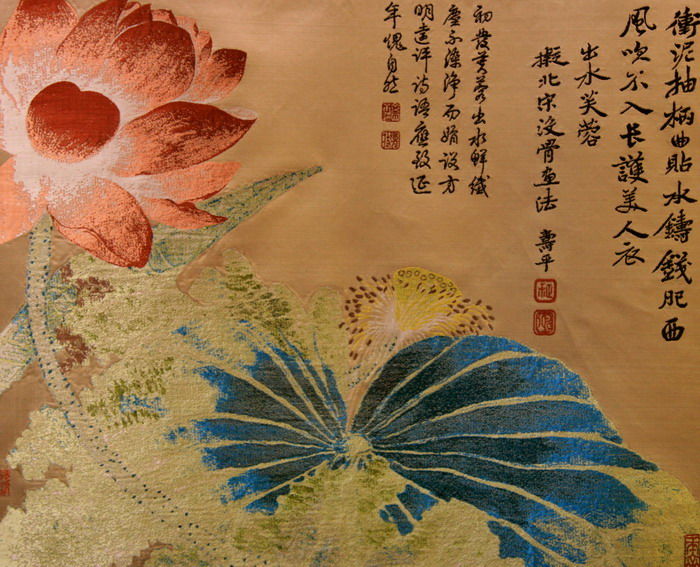 衝泥抽柄曲貼水鑄錢肥西
風吹不入長護美人衣
出水芙蓉
擬北宋沒骨画法 壽平
初發芙蓉出水鮮纖
塵不染淨而娟設方
明遠评詩語應致延
年愧自然